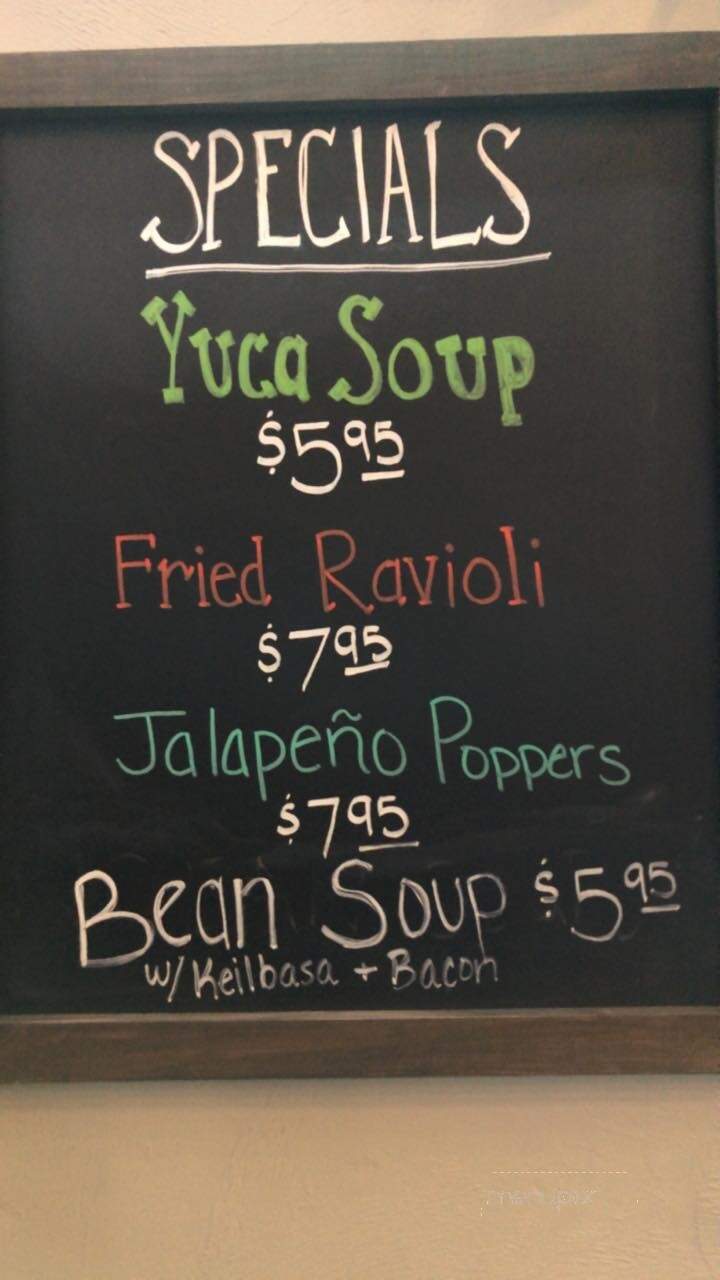 SPECIALS
Yuca Soup
$5 95
Fried Ravioli
$7 95
Jalapeño Poppers
$7 95
Bean Soup $5 95
w/ Keilbasa + Bacon